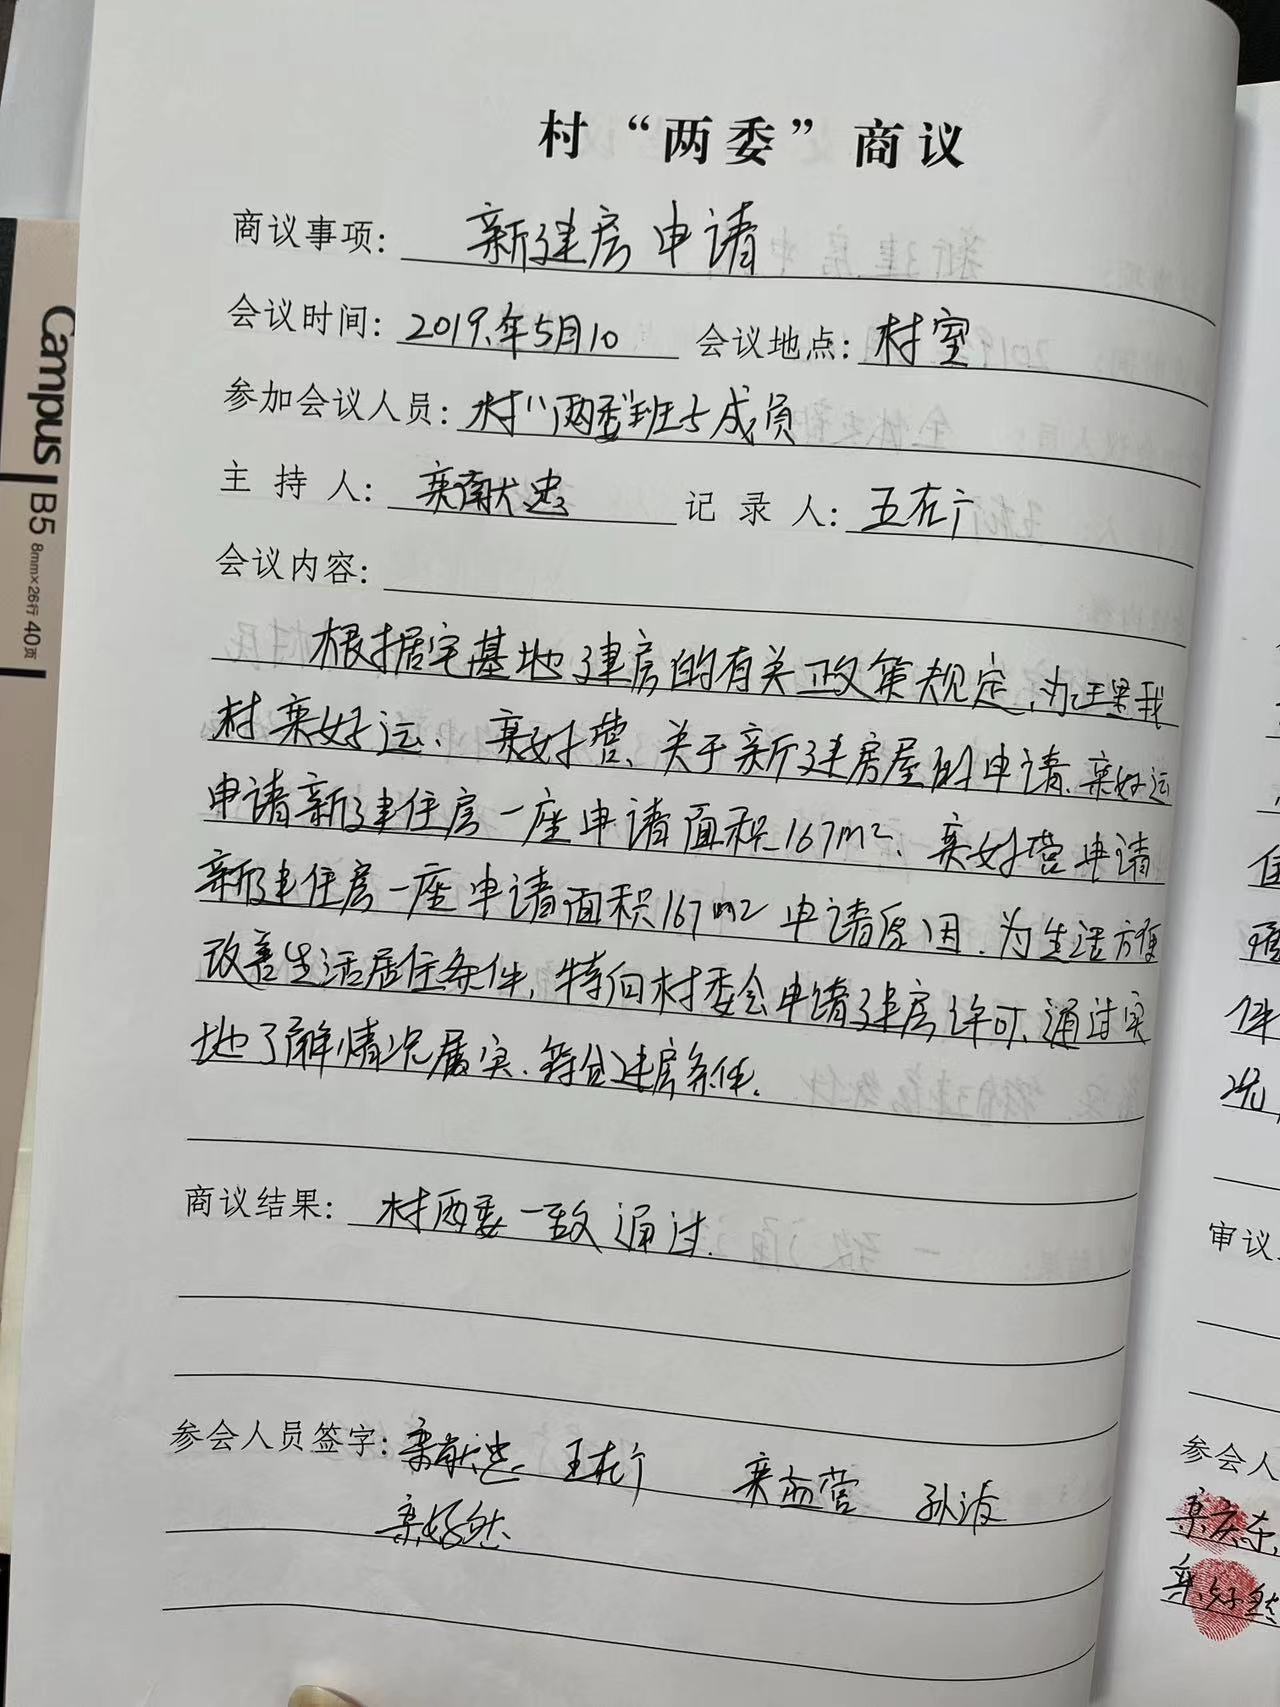 Campus B5 8mm×26行 40页
村“两委”商议
商议事项: 新建房申请
会议时间: 2019.年5月10 会议地点: 村室
参加会议人员: 村“两委”班子成员
主持人: 栾献忠 记录人: 王在行
会议内容:
根据宅基地建房的有关政策规定,
村栾好运、栾好营、关于新建房屋的申请、栾好运
申请新建住房一座申请面积167m2、栾好营申请
新建住房一座申请面积167m2申请原因、为生活方便
改善生活居住条件,特向村委会申请建房许可、通过实
地了解情况属实、符合建房条件.
商议结果: 村两委一致通过.
参会人员签字: 栾献忠 王在行 孙波
栾好然
审议
参会人